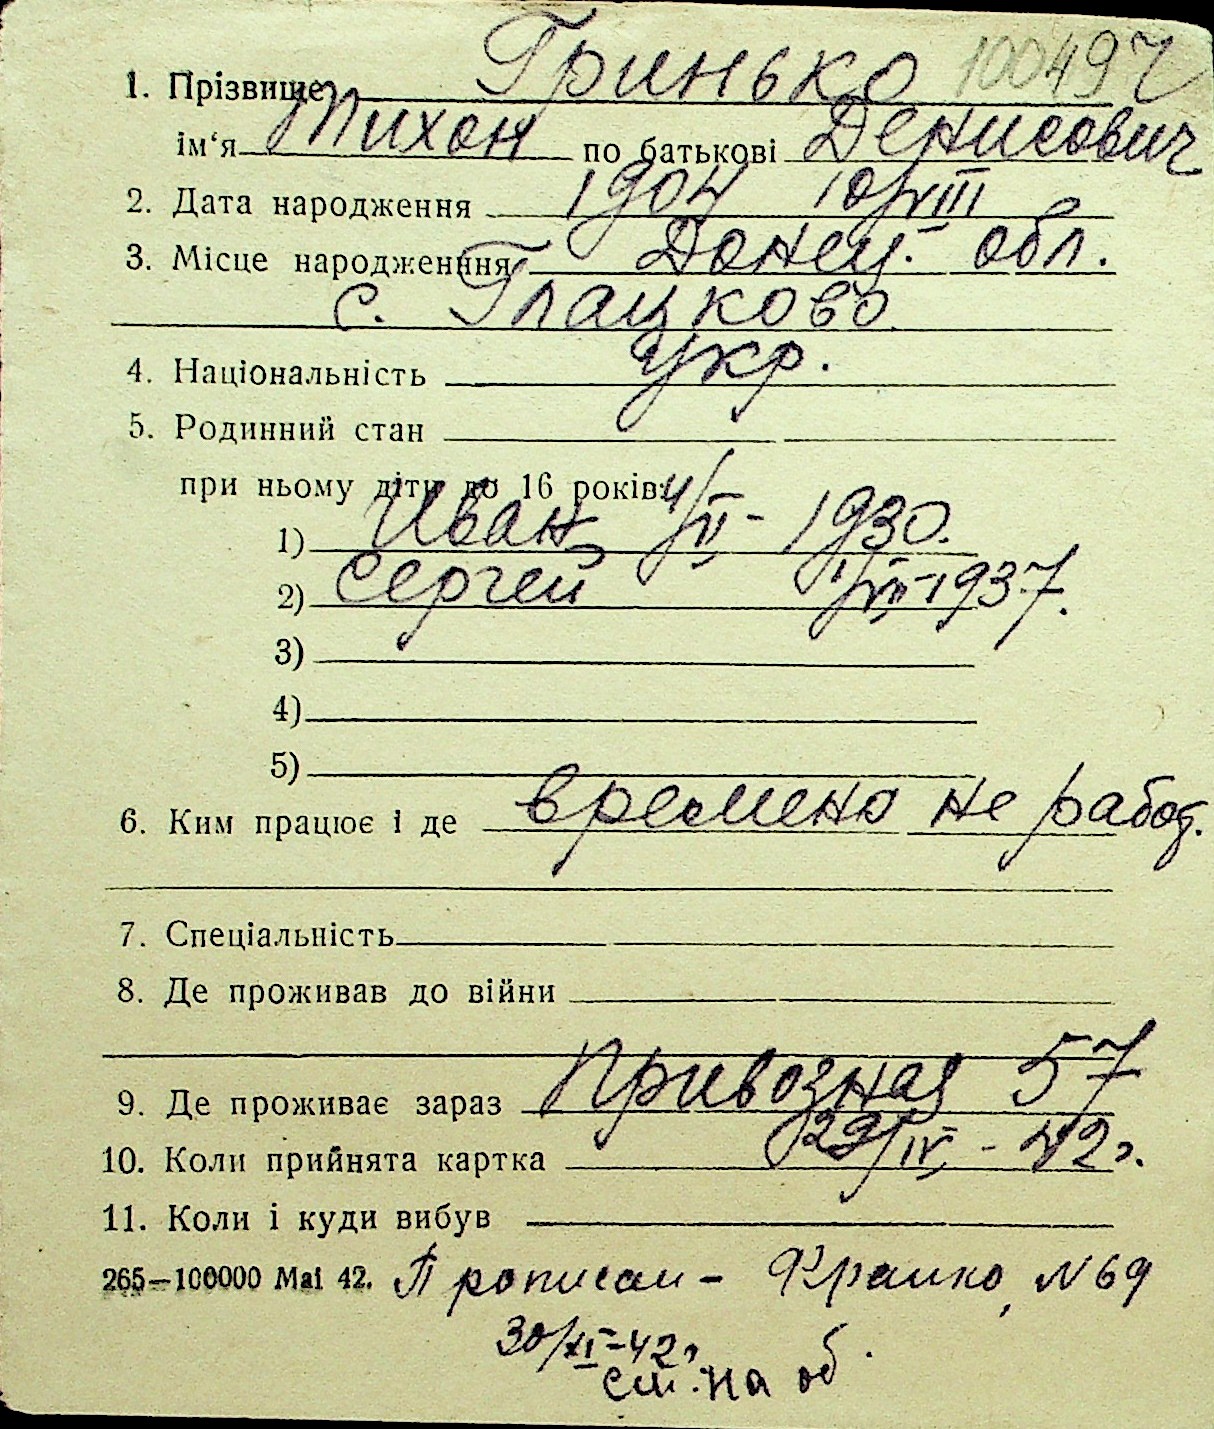 1. Прізвище Гринько 100497
ім‘я Тихон по батькові Денисович
2. Дата народження 1904 10/VIII
3. Місце народженння Донец. обл.
с. Глацково
4. Національність укр.
5. Родинний стан
при ньому діти до 16 років:
1) Иван 4/II - 1930.
2) Сергей 1/VII-1937.
3)
4)
5)
6. Ким працює і де времено не работ.
7. Спеціальність
8. Де проживав до війни
9. Де проживає зараз Привозная 57
10. Коли прийнята картка 29/IV - 42г.
11. Коли і куди вибув
265—100000 Mai 42. Прописан - Франко, N 69
30/XI-42г
см. на об.